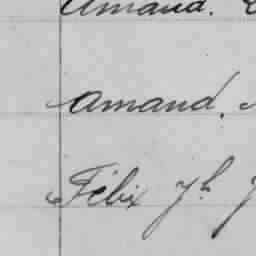 Amand.
Amand.
Félix Jh